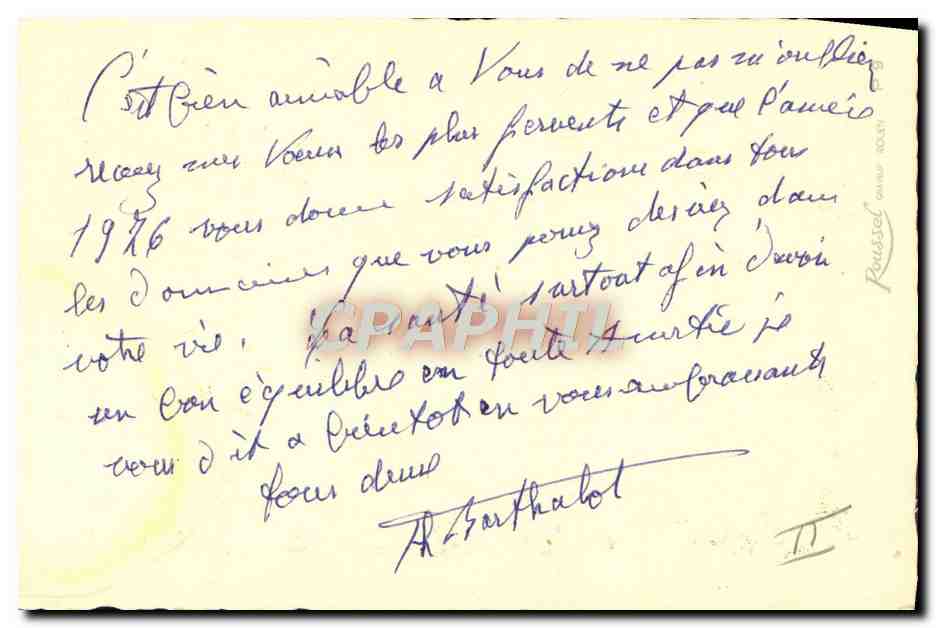 C'est bien aimable a Vous de ne pas m'oublier
recevez mes Voeux les plus fervents et que l'année
1976 vous donne satisfactions dans tous
les domaines que vous pouvez désirez dans
votre vie. La santé surtout afin d'avoir
un bon équilibre en toute Amitié je
vous dit a bientot en vous embrassants
tous deux
Th Barthalot
II
Roussel
CPAPHIL